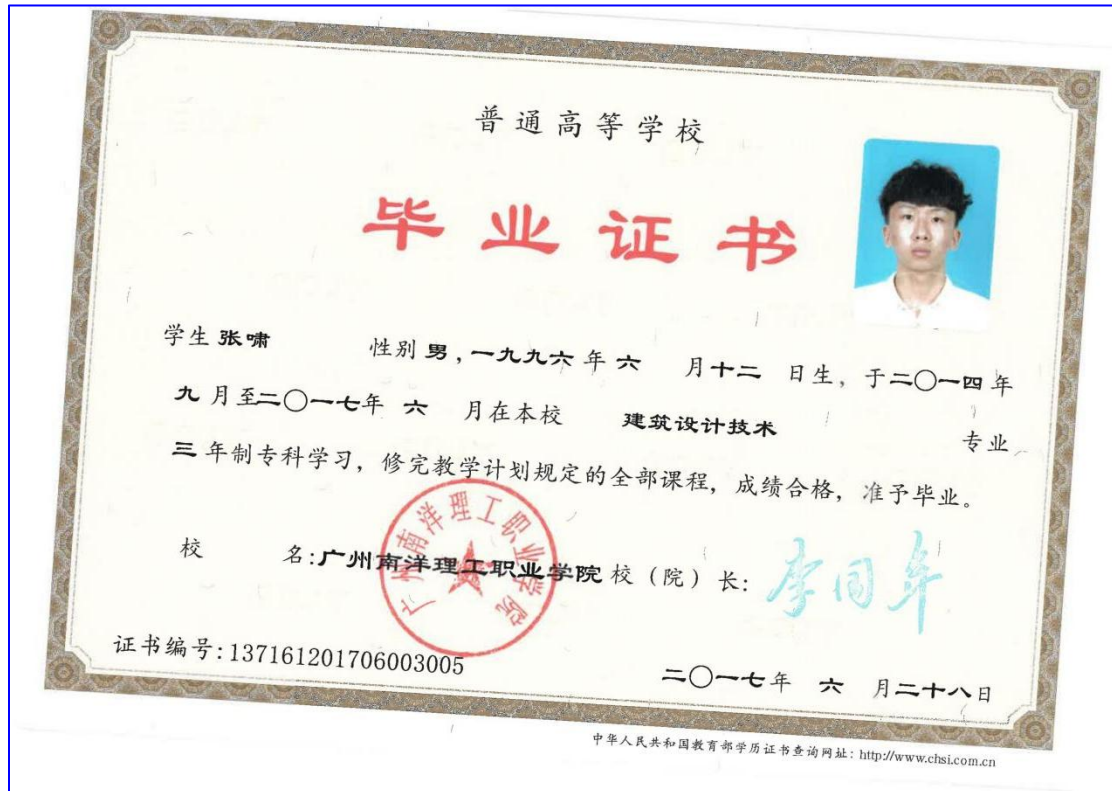 普通高等学校
毕业证书
学生 张啸 性别 男，一九九六 年 六 月 十二 日生，于二〇一四 年
九 月至二〇一七年 六 月在本校 建筑设计技术 专业
三 年制专科学习，修完教学计划规定的全部课程，成绩合格，准予毕业。
校 名：广州南洋理工职业学院 校（院）长：
广州南洋理工职业学院
证书编号：137161201706003005
二〇一七年 六 月二十八日
中华人民共和国教育部学历证书查询网址：http://www.chsi.com.cn